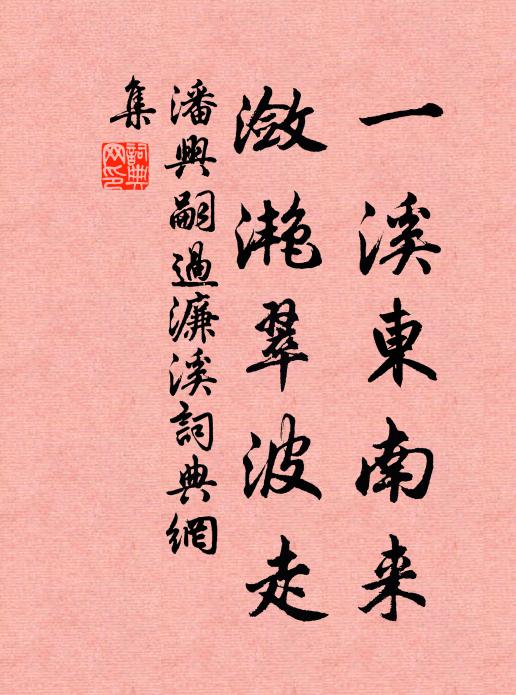 一溪東南来
瀲灧翠波走
潘興嗣過濂溪詞典網
集
詞典
网印